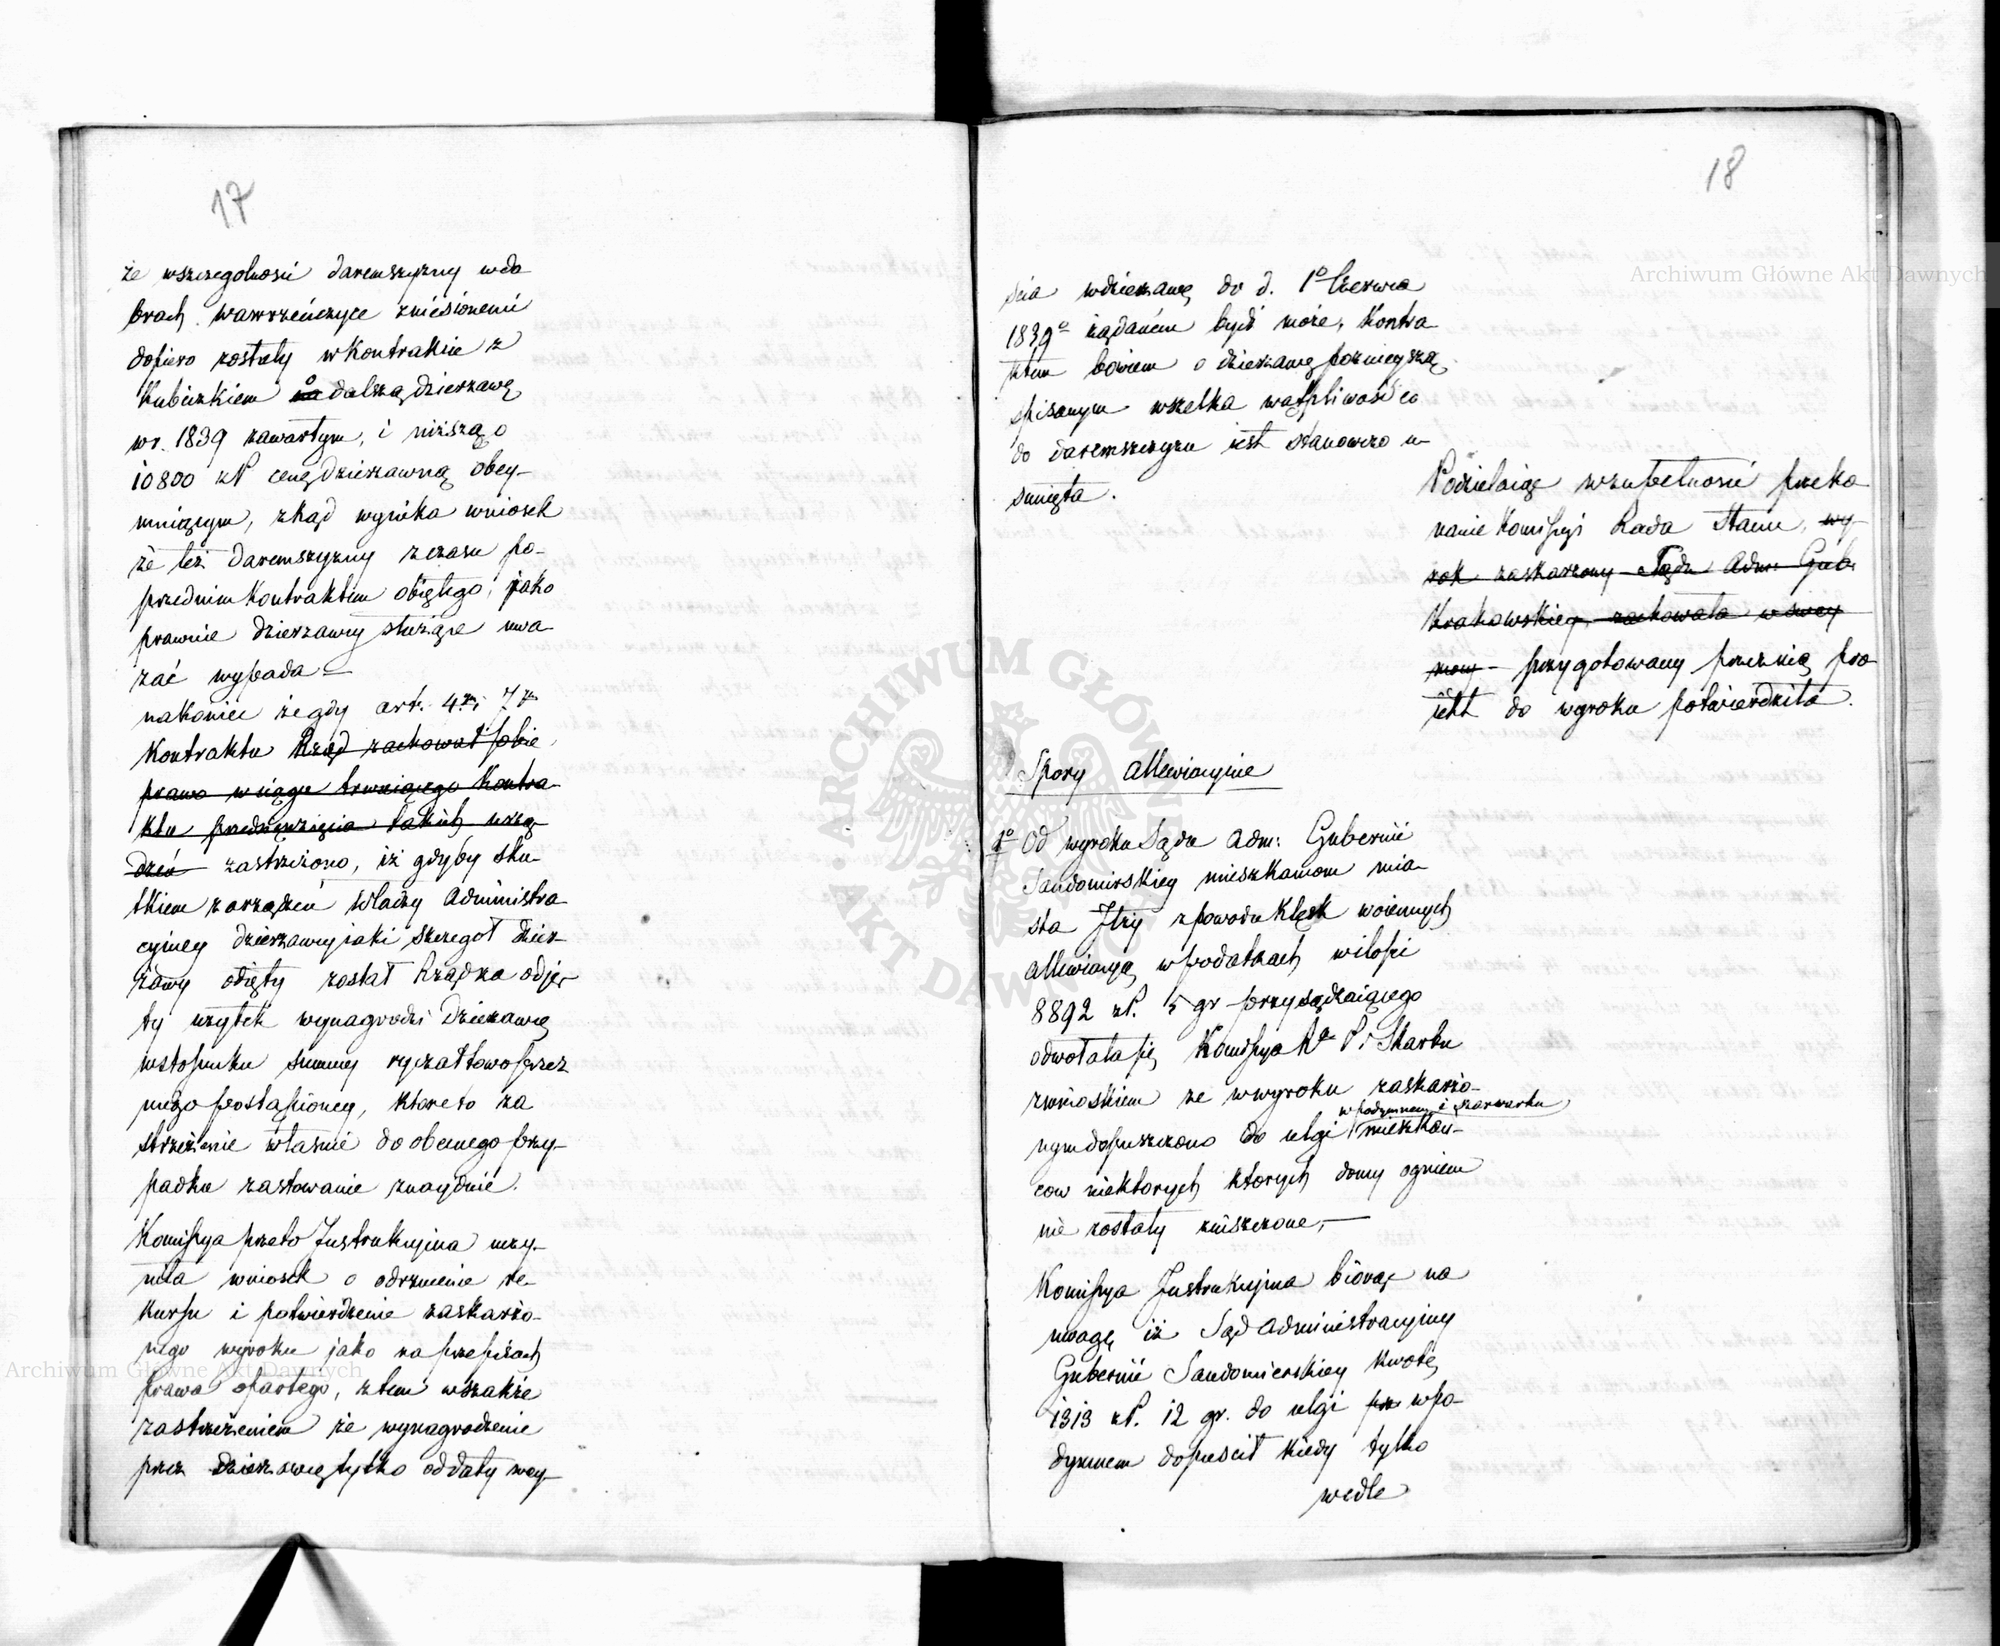 17
że wszczegolnosci daremszczyzny wdo
brach Wawrzeńczyce zniesionemi
dopiero zostały wKontrakcie z
Kubickiem na o dalszą dzierzawę
wr. 1839 zawartym, i niższą o
10800 zł cenę dzierzawną obey-
muiącym, zkąd wynika wniosek
że też daremszczyzny zczasu po-
przednim Kontraktem obiętego, jako
prawnie dzierzawcy służące uwa
żać wypada –
nakoniec że gdy art. 4 i 7
Kontraktu Rząd zachował sobie
prawo wciągu trwaiącego Kontra-
ktu przedsięwzięcia takich urzą
dzeń zastrzeżono, iż gdyby sku-
tkiem zarządzeń Władzy Administra
cyiney dzierzawcy jaki szczegoł dzier-
żawy odięty został Rząd za odję-
ty użytek wynagrodzi Dzierzawcę
wstosunku summy ryczałtowo przez
niego postąpioney, ktore to za
strzeżenie właśnie do obecnego przy-
padku zastosowanie znayduie.
Kommissya przeto Instrukcyina uczy-
niła wniosek o odrzucenie re-
kursu i potwierdzenie zaskarżo-
nego wyroku jako na przepisach
prawa opartego, ztem wszakże
zastrzeżeniem że wynagrodzenie
przez dzierzawcę tylko od daty wey-
18
ścia wdzierzawę do d. 1o Czerwca
1839o żądanem bydź może, Kontra-
ktem bowiem o dzierzawę poznieyszą
spisanym wszelka wątpliwość co
do daremszczyzn iest stanowczo u-
sunięta.
Podzielaiąc wzupełności przeko
nanie Komissyi Rada Stanu, wy-
rok zaskarzony Sądu Adm: Gub.
Krakowskiey zachowała w swey
mocy - przygotowany przez nią pro
iekt do wyroku potwierdziła.
Spory Allewiacyine
1o Od wyroku Sądu Adm: Gubernii
Sandomirskiey mieszkańcom mia-
sta Iłży zpowodu Klęsk woiennych
allewiacyą wpodatkach wilości
8892 zł. 5 gr przysądzaiącego
odwołała się Komissya Ra P. i Skarbu
zwnioskiem że wwyroku zaskarżo-
wpodymnem i szarwarku
nym dopuszczono do ulgi mieszkań-
cow niektorych ktorych domy ogniem
nie zostały zniszczone, —
Komissya Instrukcyina biorąc na
uwagę iż Sąd Administracyiny
Gubernii Sandomierskiey kwotę
1313 zł. 12 gr. do ulgi wpo-
dymnem dopuścił kiedy tylko
wedle